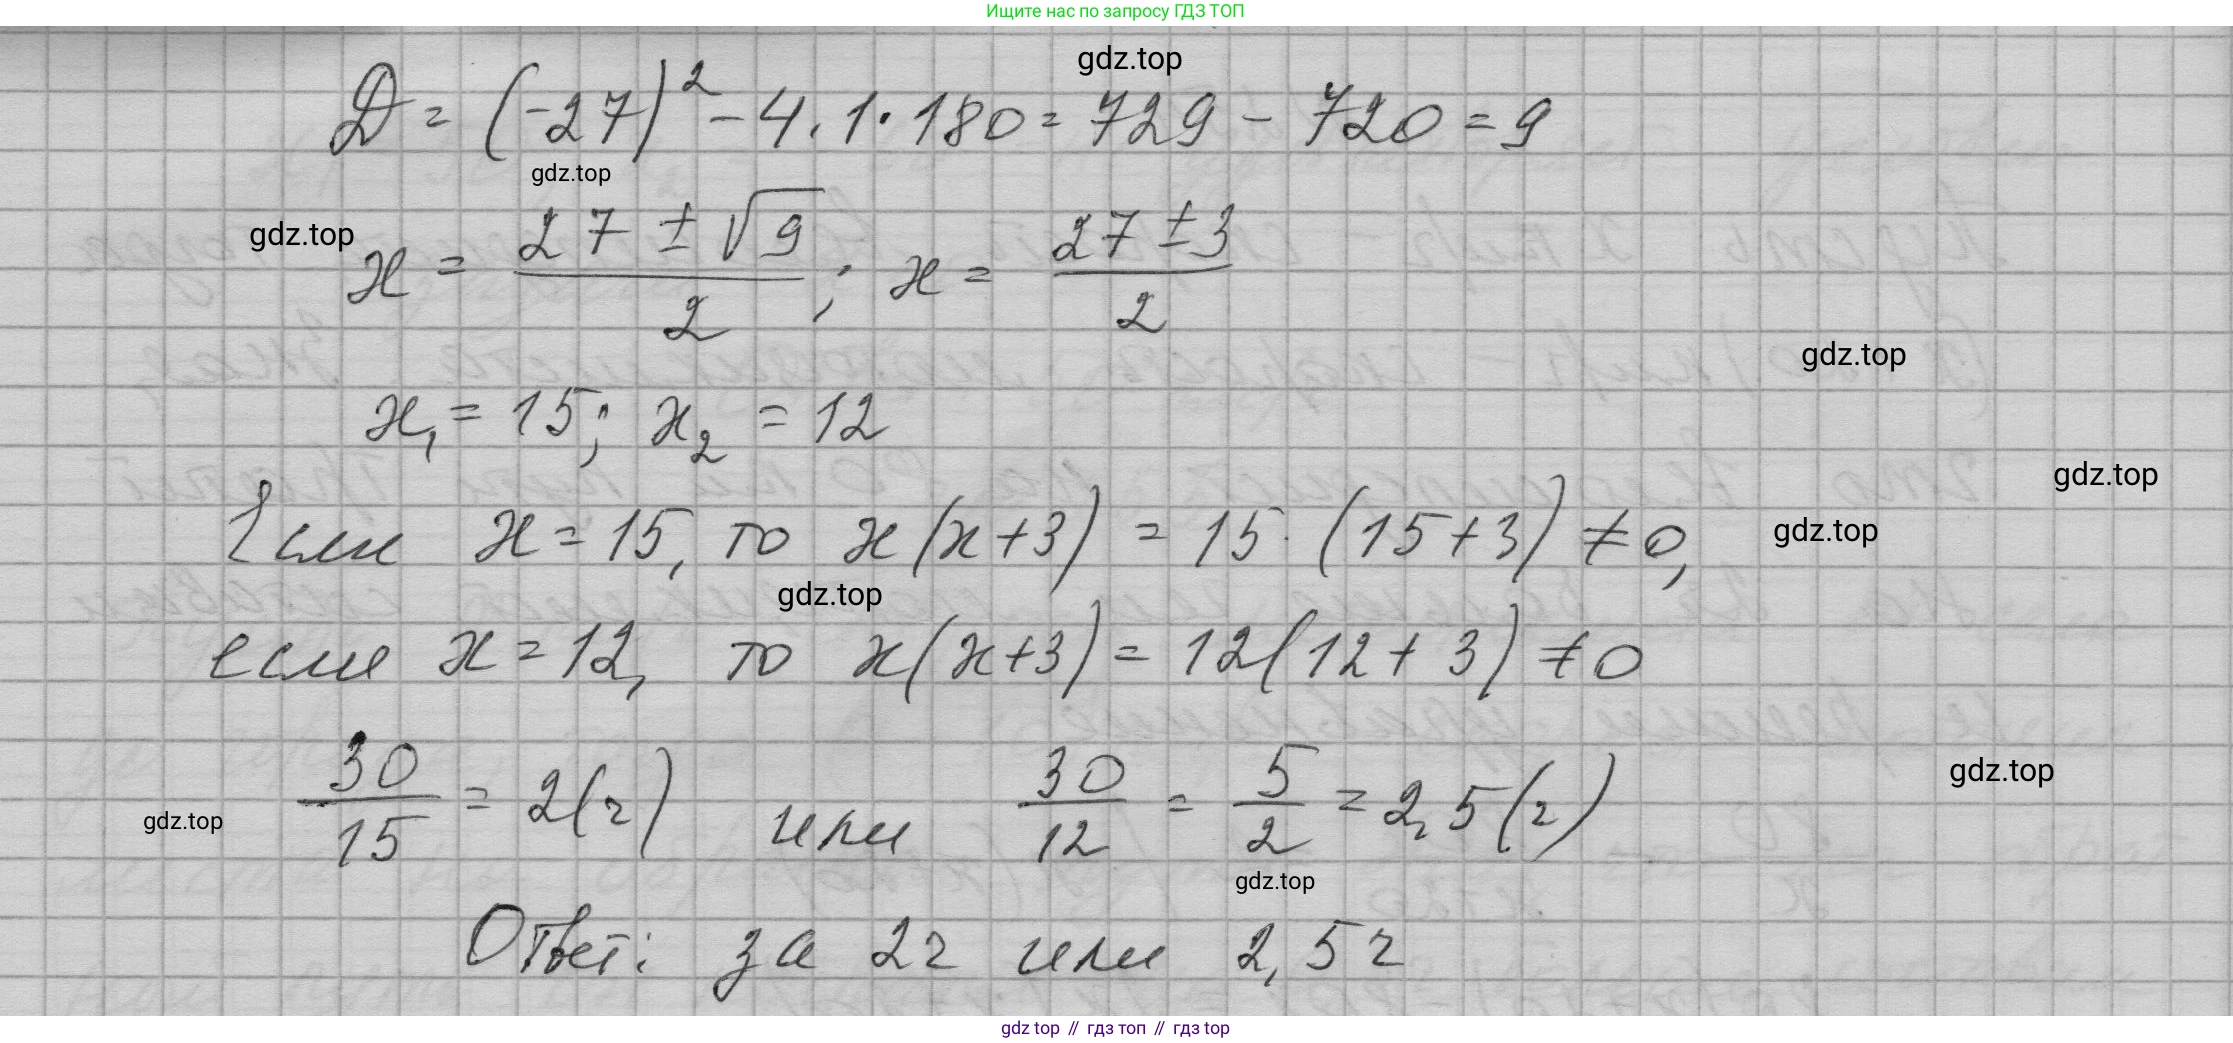 Ищите нас по запросу ГДЗ ТОП
gdz.top
Д = (-27)² - 4 · 1 · 180 = 729 - 720 = 9
gdz.top
gdz.top
x = (27 ± √9)/2 ; x = (27 ± 3)/2
gdz.top
x₁ = 15; x₂ = 12
gdz.top
Если x = 15, то x(x+3) = 15 · (15+3) ≠ 0,
gdz.top
gdz.top
если x = 12, то x(x+3) = 12(12+3) ≠ 0
30/15 = 2(ч) или 30/12 = 5/2 = 2,5(ч)
gdz.top
gdz.top
gdz.top
Ответ: за 2ч или 2,5ч
gdz top // гдз топ // гдз top